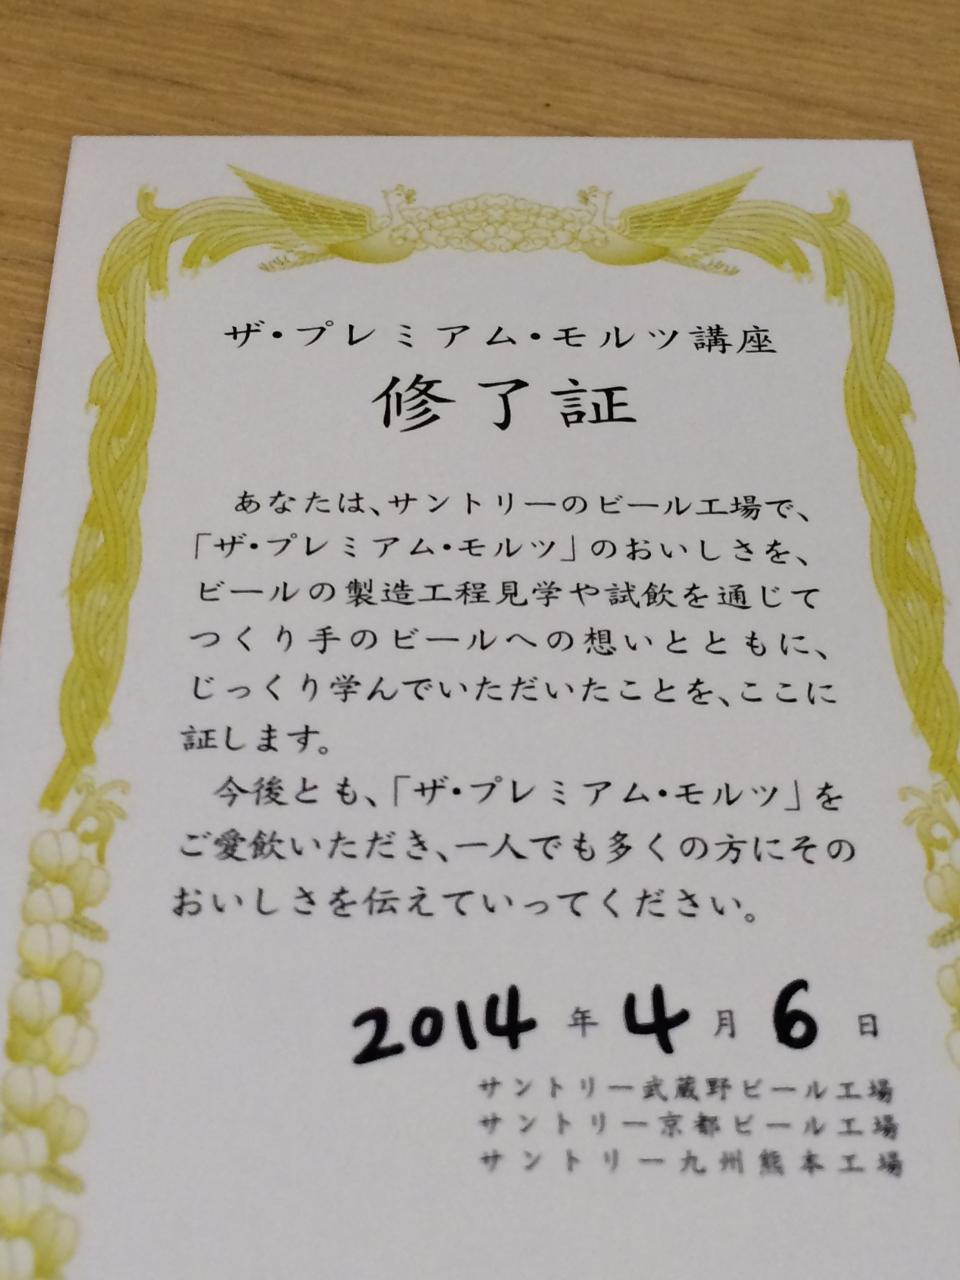 ザ・プレミアム・モルツ講座
修了証
あなたは、サントリーのビール工場で、
「ザ・プレミアム・モルツ」のおいしさを、
ビールの製造工程見学や試飲を通じて
つくり手のビールへの想いとともに、
じっくり学んでいただいたことを、ここに
証します。
今後とも、「ザ・プレミアム・モルツ」を
ご愛飲いただき、一人でも多くの方にその
おいしさを伝えていってください。
2014年4月6日
サントリー武蔵野ビール工場
サントリー京都ビール工場
サントリー九州熊本工場